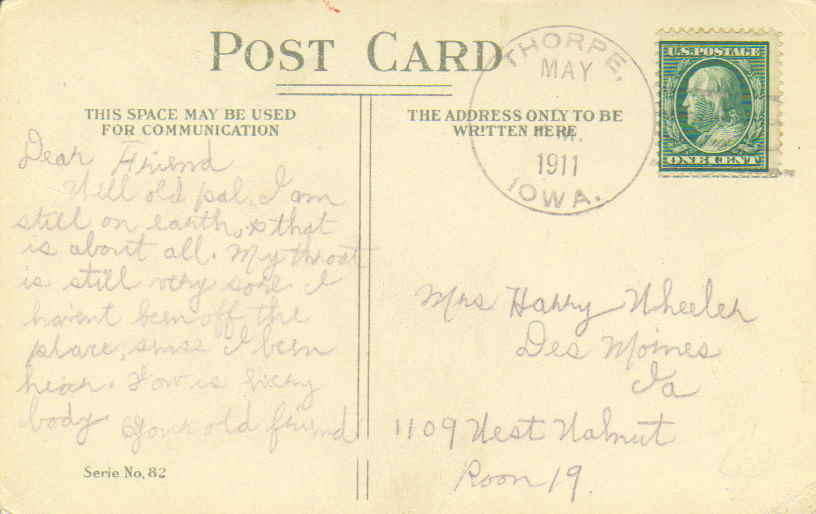 POST CARD
THORPE,
MAY
M.
1911
IOWA.
U.S. POSTAGE
ONE CENT
THIS SPACE MAY BE USED
FOR COMMUNICATION
THE ADDRESS ONLY TO BE
WRITTEN HERE
Dear Friend
Well old pal, I am
still on earth, & that
is about all. My throat
is still very sore I
havent been off the
place, I been
hear. How is Every
body. Your old friend
Mrs Harry Wheeler
Des Moines
Ia
1109 West Walnut
Room 19.
Serie No. 82